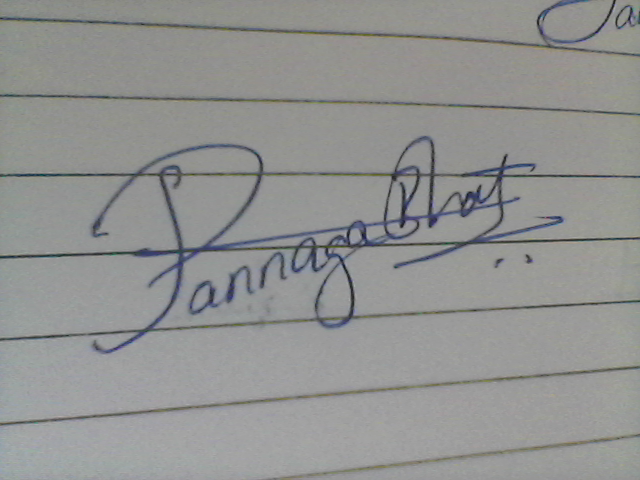 Pannaga Bhat